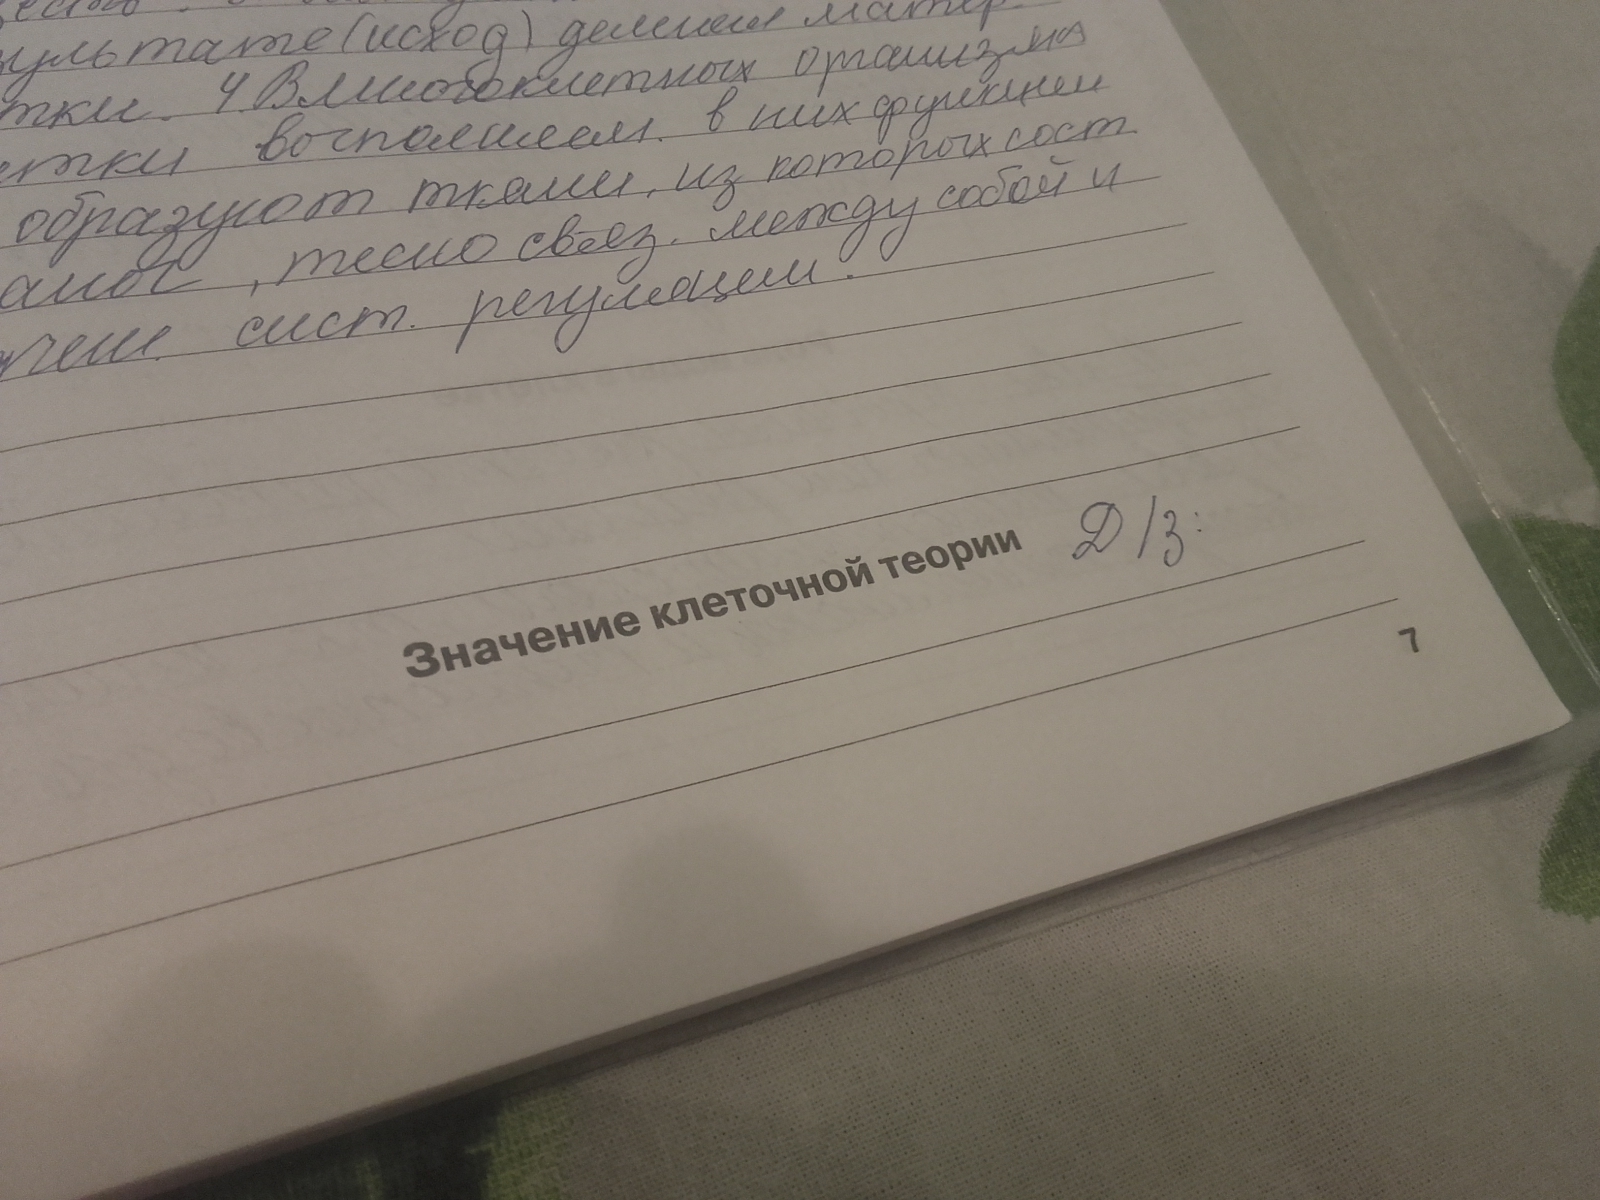 ультате (исход) делении матер.
тки. 4 В многоклетных организма
етки восполнением. в них функции
образуют ткани, из которых сост
, тесно связ. между собой и
сист. регуляции.
Значение клеточной теории Д/з:
7